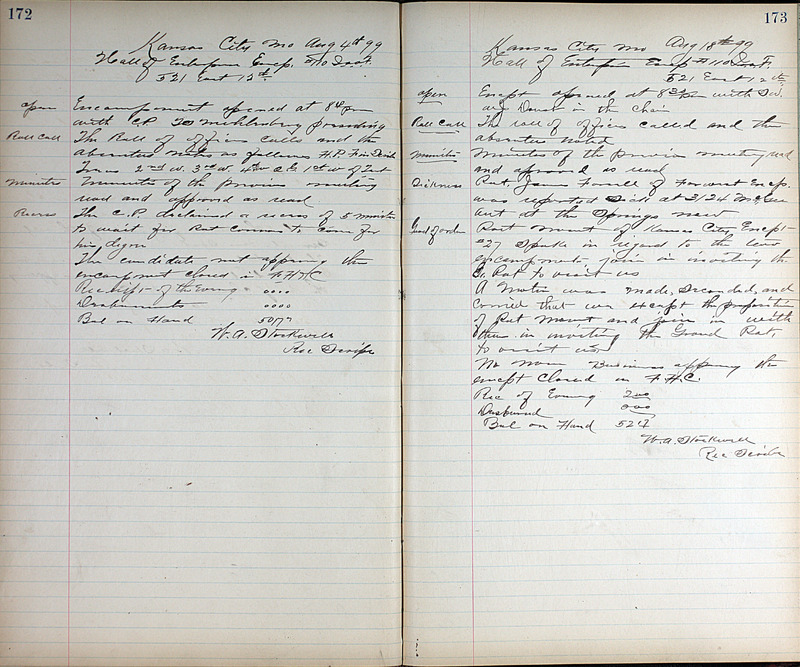 172
Kansas City Mo Aug 4th 99
Hall of Enterprise Encp. #110 I.O.O.F.
521 East 12th
open Encampment opened at 8 pm
with C.P. presiding
Roll Call The Roll of officers calls and the
absentees notes as follows H.P. Fin Scribe
2nd W. 3rd W. 4th W. 1st W of Tent
Minutes Minutes of the previous meeting
read and approved as read
Recess The C.P. declared a recess of 5 minutes
to wait for to come for
his degree
The candidate not appearing the
encampment closed in F.H.C
Receipts of the Evening 0000
Disbursments 0000
Bal on Hand 5017
W.A. Stockwell
Rec Scribe
173
Kansas City Mo Aug 18th 99
Hall of Enterprise Encp #110 I.O.O.F.
521 East 12th
open Encpt opened at 8 pm with
in the Chair
Roll Call The roll of officers called and the
absentees noted
Minutes Minutes of the previous meeting read
and approved as read
Sickness Pat. James of Encp.
was reported Sick at 3124
but at the Springs now
Good of order Pat of Kansas City Encpt
#27 Spoke in regard to the
encampments join in inviting the
G. Pat to visit us
A Motion was made, Seconded, and
Carried that we the proposition
of Pat and join in with
them in inviting the Grand Pat,
to visit us
No more Business appearing the
encpt Closed in F.H.C.
Rec of Evening 200
Disbursed 000
Bal on Hand 5217
W.A. Stockwell
Rec Scribe